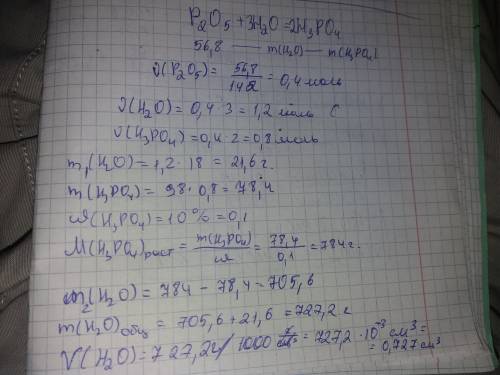 P₂O₅ + 3H₂O = 2H₃PO₄
56,8 —— m(H₂O) — m(H₃PO₄)
ν(P₂O₅) = 56,8/142 = 0,4 моль
ν(H₂O) = 0,4 · 3 = 1,2 моль
ν(H₃PO₄) = 0,4 · 2 = 0,8 моль
m₁(H₂O) = 1,2 · 18 = 21,6 г.
m(H₃PO₄) = 98 · 0,8 = 78,4
ω(H₃PO₄) = 10% = 0,1
M(H₃PO₄)раст = m(H₃PO₄)/ω = 78,4/0,1 = 784 г.
m₂(H₂O) = 784 - 78,4 = 705,6
m(H₂O)общ = 705,6 + 21,6 = 727,2 г
V(H₂O) = 727,2 г / 1000 = 727,2 · 10⁻³ см³ =
= 0,727 см³